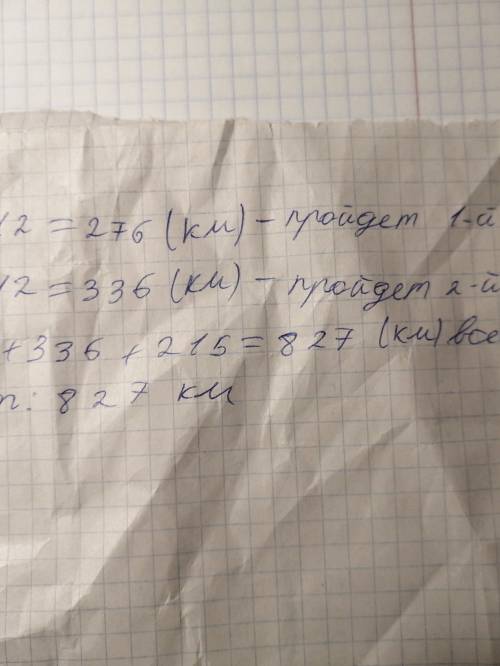 12 = 276 (км) – пройдет 1-й
12 = 336 (км) – пройдет 2-й
+ 336 + 215 = 827 (км) все
т: 827 км